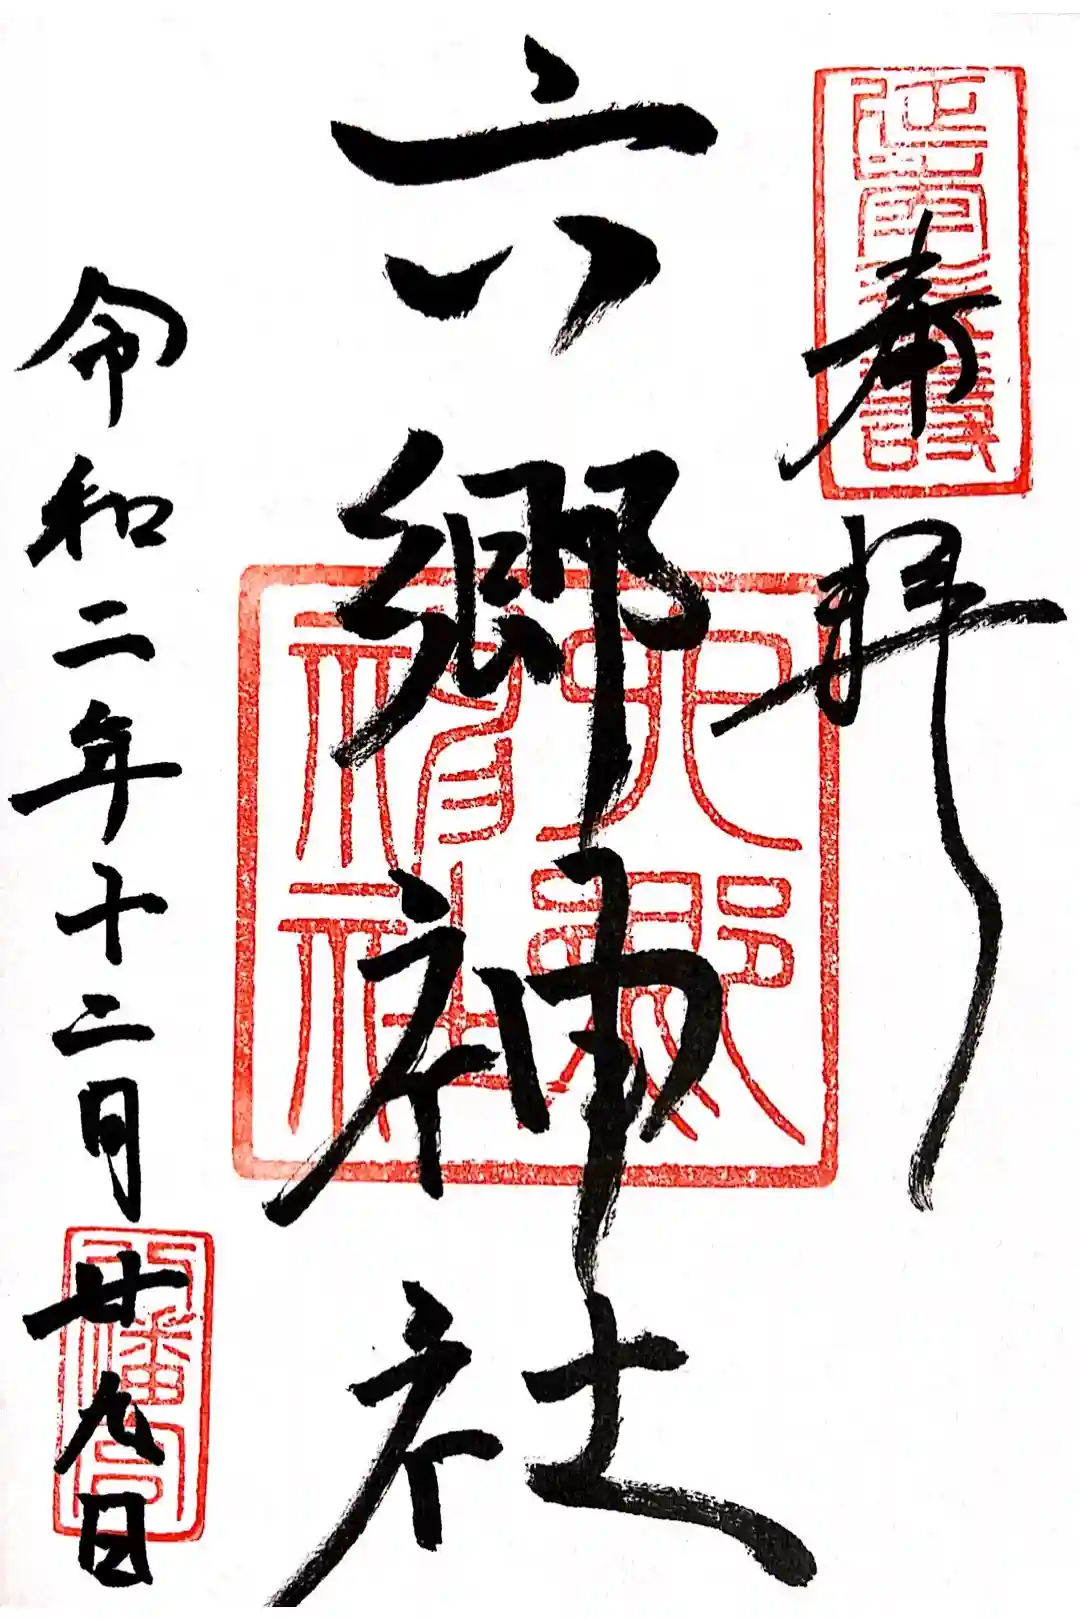 奉拝
六郷神社
六郷神社
令和二年十二月廿九日
八幡宮